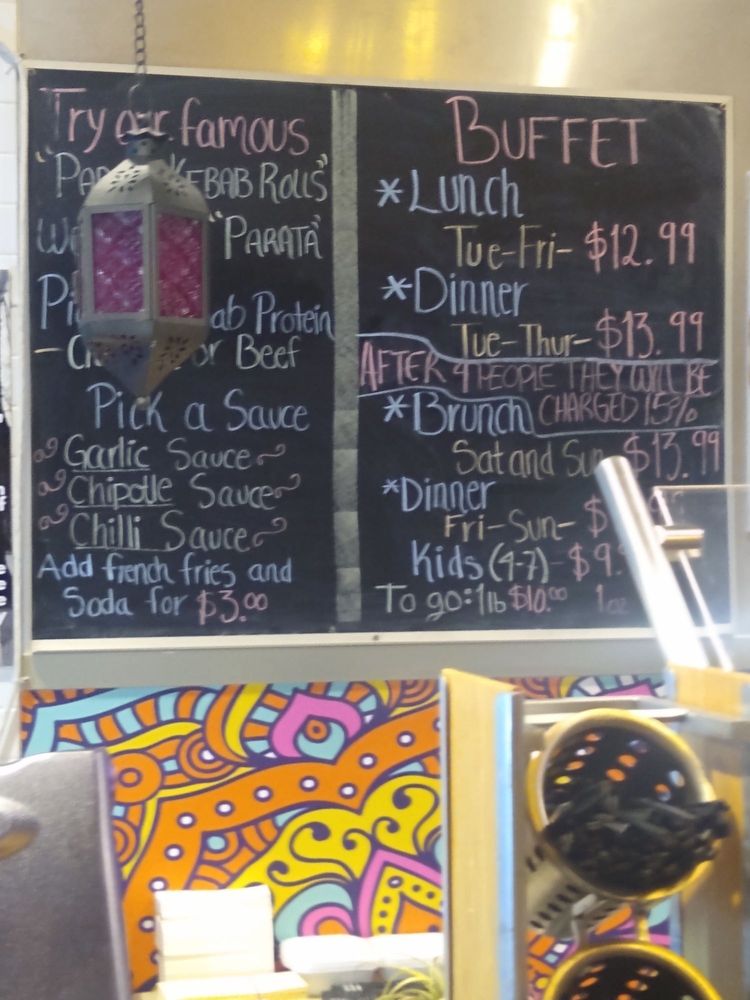 Try our famous
KEBAB ROLLS"
"PARATA"
ab Protein
or Beef
Pick a Sauce
Garlic Sauce
Chipotle Sauce
Chilli Sauce
Add french fries and
Soda for $3.00
BUFFET
*Lunch
Tue-Fri- $12.99
*Dinner
Tue-Thur- $13.99
AFTER 4 PEOPLE THEY WILL BE
CHARGED 15%
*Brunch
Sat and Sun $13.99
*Dinner
Fri-Sun- $
Kids (4-7)- $9.
To go: 1lb $10.00 1oz